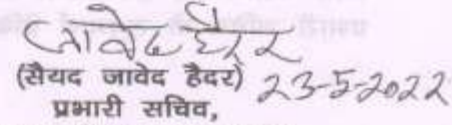 जावेद हैदर
(सैयद जावेद हैदर) 23-5-2022
प्रभारी सचिव,